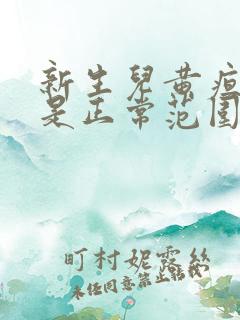 新生儿黄疸
是正常范围
町村妮露丝
未经同意禁止转载